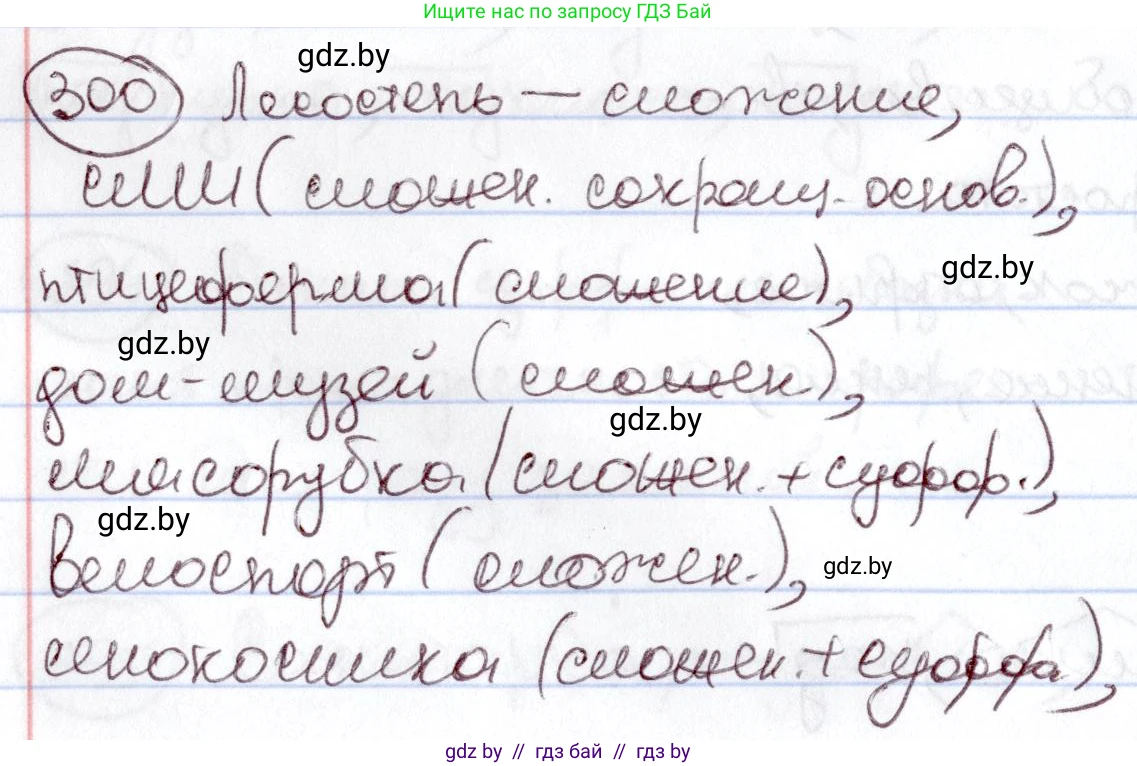 Ищите нас по запросу ГДЗ Бай
gdz.by
300 Лесостепь — сложение,
СМИ (сложен. сокращ. основ.),
птицеферма (сложение),
gdz.by
gdz.by
дом-музей (сложен),
gdz.by
мясорубка (сложен. + суфф.),
gdz.by
велоспорт (сложен.),
gdz.by
сенокосилка (сложен. + суффа),
gdz.by // гдз бай // гдз by